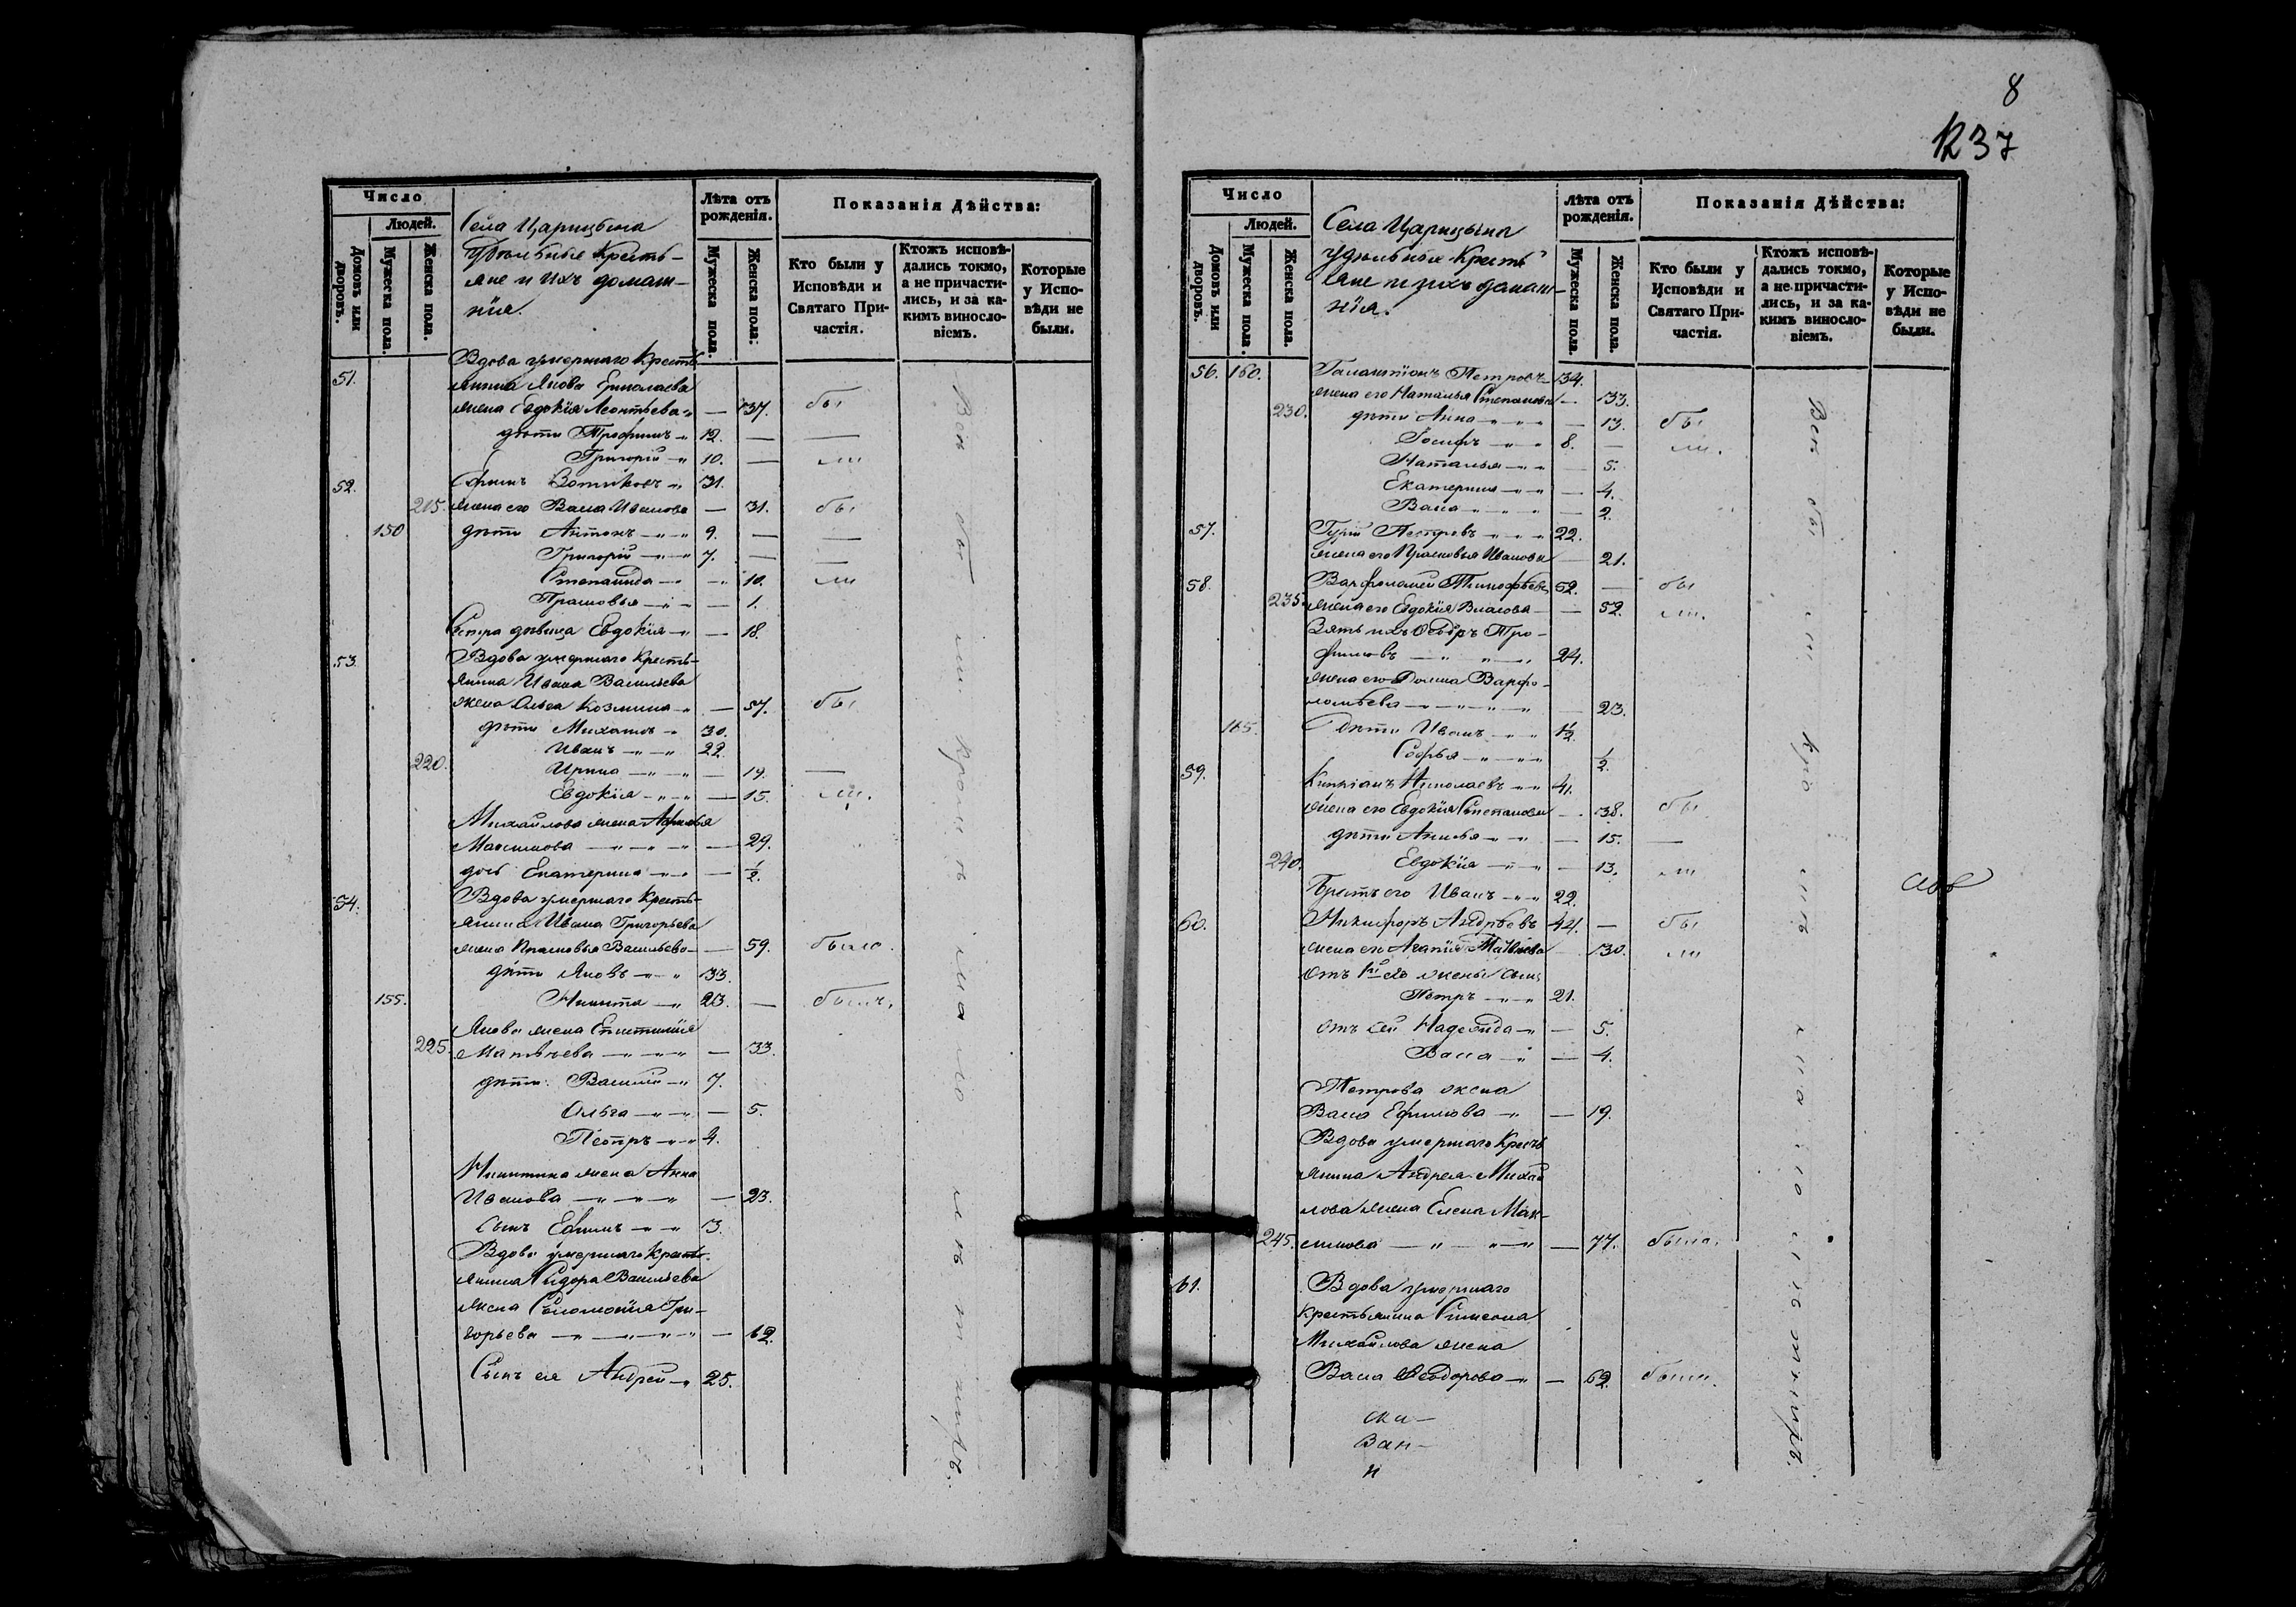 8
1237
Число
Людей.
Домовъ или дворовъ.
Мужеска пола.
Женска пола.
Села Царицына
Удѣльные Кресть-
яне и ихъ домаш-
нiя.
Лѣта отъ рожденія.
Мужеска пола.
Женска пола:
Показанія Дѣйства:
Кто были у Исповѣди и Святаго Причастія.
Ктожъ исповѣдались токмо, а не причастились, и за какимъ винословіемъ.
Которые у Исповѣди не были.
Вдова умершаго Кресть
51.
янина Якова Ермолаева
жена Евдокія Леонтьева — 37. бы
дѣти Трофимъ 12. — —
Григорій 10. — ли
52. Зотиковъ 31.
215. жена его Васса Иванова — 31. бы
150 дѣти Антонъ 9. — —
Григорій 7. — —
Степанида — 10. ли
Прасковья — 1.
Сестра дѣвица Евдокія — 18.
53. Вдова умершаго Кресть-
янина Ивана Васильева
жена Ольга Козмина — 57. бы
дѣти Михаилъ 30.
Иванъ 22.
220. Ирина — 19. —
Евдокія — 15. ли.
Михайлова жена
Максимова — 29.
дочь Екатерина — 1/2.
54. Вдова умершаго Кресть-
янина Ивана Григорьева
жена Прасковья Васильева — 59. была.
дѣти Яковъ 33.
155. Никита 23. — былъ.
Якова жена Епистимія
225. Матвѣева — 33.
дѣти: Василій 7.
Ольга — 5.
Петръ 4.
Никитина жена Анна
Иванова — 23.
сынъ Ефимъ 3.
Вдова умершаго Кресть-
янина Сидора Васильева
жена Соломонія Гри-
горьева — 62.
Сынъ ея Андрей 25.
Число
Людей.
Домовъ или дворовъ.
Мужеска пола.
Женска пола.
Села Царицына
удѣльные Кресть
яне и ихъ домаш-
нiя.
Лѣта отъ рожденія.
Мужеска пола.
Женска пола.
Показанія Дѣйства:
Кто были у Исповѣди и Святаго Причастія.
Ктожъ исповѣдались токмо, а не причастились, и за какимъ винословіемъ.
Которые у Исповѣди не были.
56. 160. Галактіонъ Петровъ 34.
жена его Наталья Степанова — 33.
230. дѣти Анна — 13. бы
Іосифъ 8. — ли.
Наталья — 5.
Екатерина — 4.
Васса — 2.
57. Гурій Петровъ 22.
жена его Прасковья Иванова — 21.
58. Варфоломей Тимофѣевъ 52. — бы
235. жена его Евдокія Власова — 52. ли.
Зять ихъ Ѳедоръ Тро-
фимовъ 24.
жена его Домна Варфо-
ломѣева — 23.
165. Дѣти Иванъ 1 1/2.
Софья 1/2.
59. Кипріанъ Николаевъ 41.
жена его Евдокія Степанова — 38. бы
дѣти — 15. —
240. Евдокія — 13. ли
Братъ его Иванъ 22.
60. Никифоръ Андрѣевъ 44. — бы
жена его Агапія Матвѣева — 30. ли
отъ 1й его жены сынъ
Петръ 21.
отъ сей Надежда — 5.
Васса — 4.
Петрова жена
Васса Ефимова — 19.
Вдова умершаго Кресть
янина Андрея Михай
лова жена Елена Мак-
245. симова — 77. была.
61. Вдова умершаго
крестьянина Симеона
Михайлова жена
Васса Ѳеодорова — 62. была.